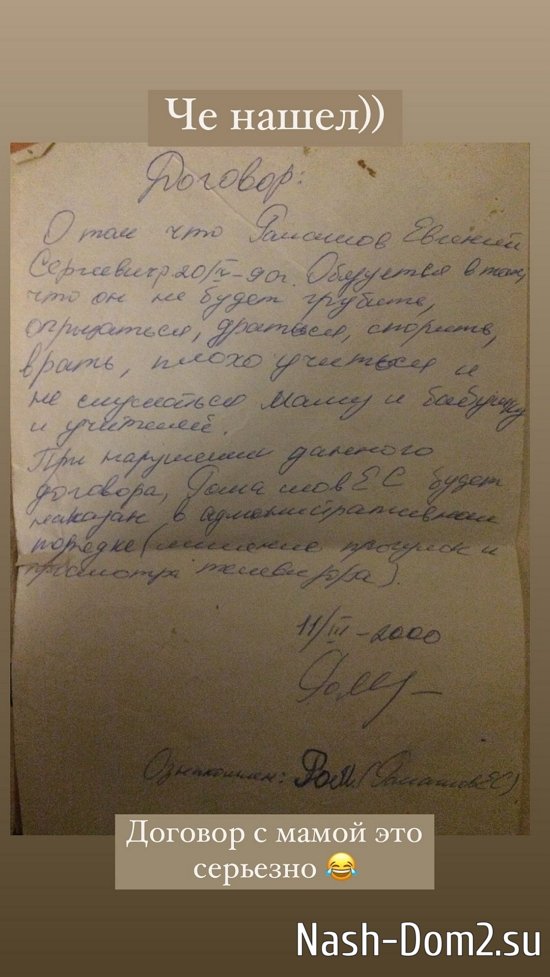 Че нашел))
Договор:
О том что Ромашов Евгений
Сергеевич 20/IV-90г. Обязуется в том,
что он не будет грубить,
огрызаться, драться, спорить,
врать, плохо учиться и
не слушаться маму и бабушку
и учителей.
При нарушении данного
договора, Ромашов ЕС будет
наказан в административном
порядке (лишение прогулок и
просмотра телевизора).
11/III-2000
Ознакомлен: (Ромашов ЕС)
Договор с мамой это
серьезно 😂
Nash-Dom2.su